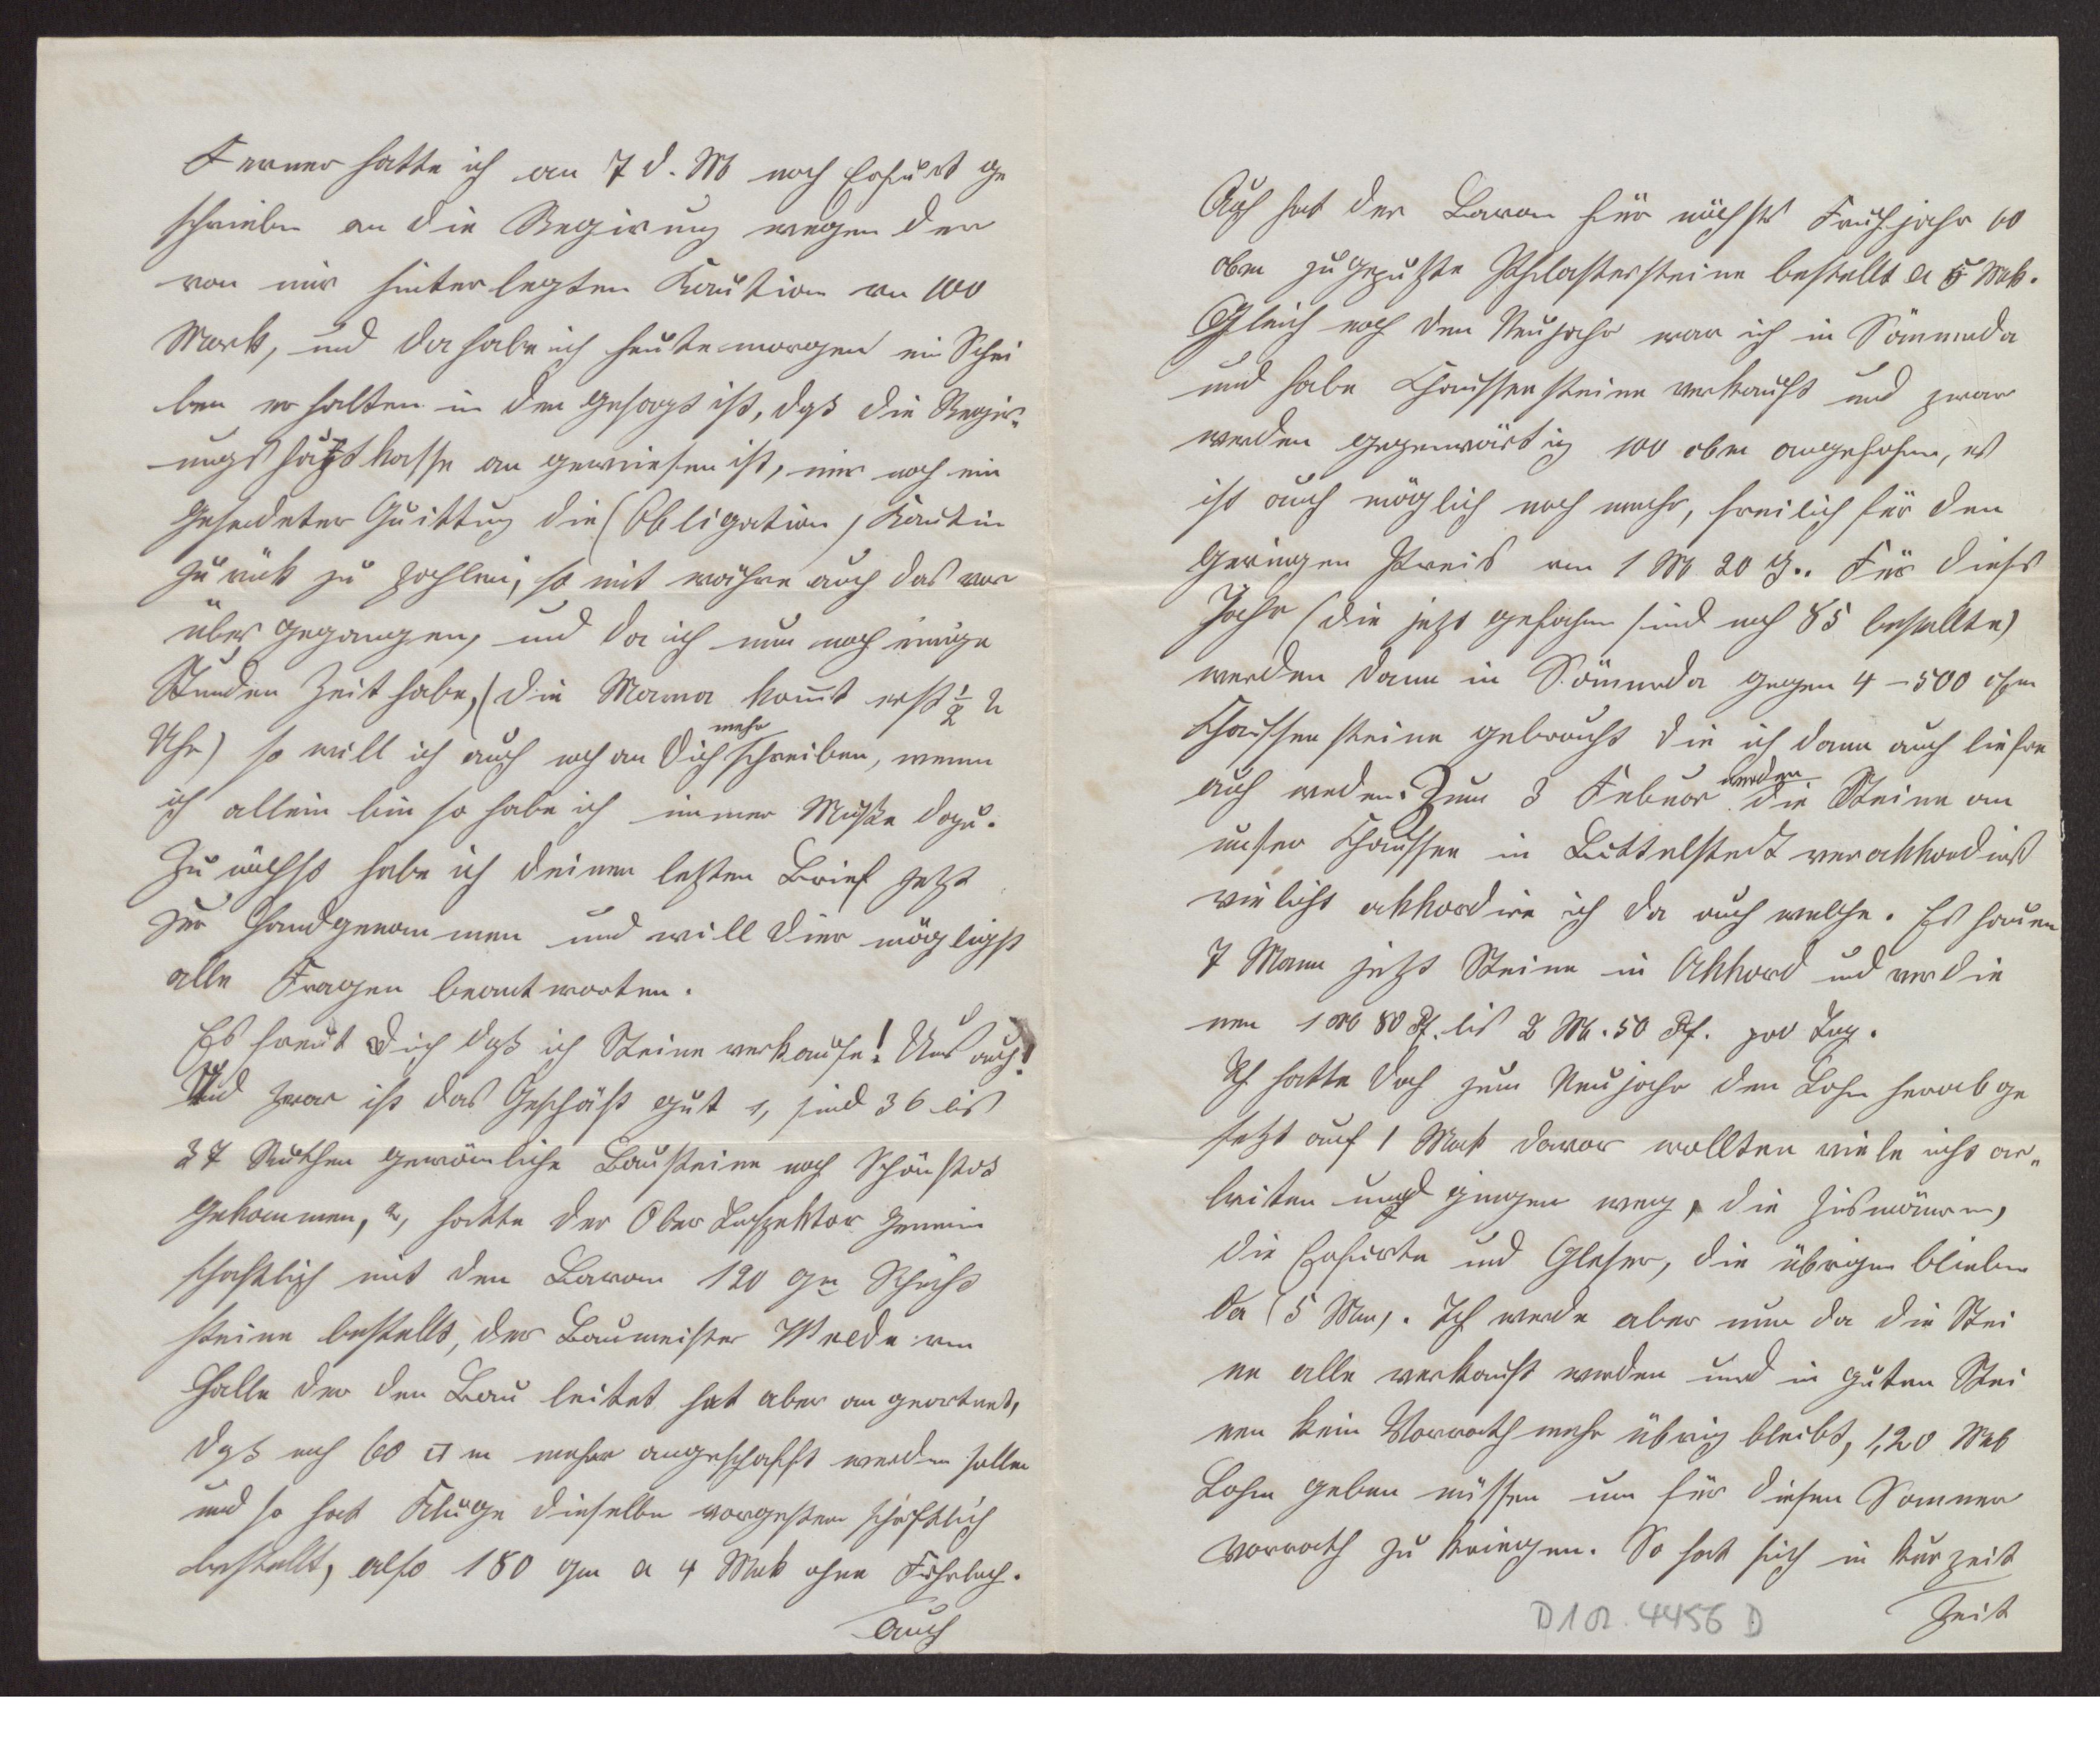 Ferner hatte ich an 7 d. M noch Erfurt ge
schrieben an die Regirung wegen der
von mir hinterlegten Kaution vn 100
Mark, und da habe ich heute morgen ein Schei
ben er halten in dem gesagt ist, daß die Regir„
ungshaptkasse an gewiesen ist, mir nach ein
gesendeter Quittung die (Obligation) Kaution
zu rück zu zahlen, so mit währe auch das vor
über gegangen, und da ich nun noch einige
Stunden Zeit habe, (die Mama komt erst 1/2 2
Uhr) so will ich auch noch an Dich mehr schreiben, wenn
ich allein bin so habe ich immer Muße dazu.
Zu nächst habe ich deinen letzten Brief jetzt
zur Hand genommen und will dier mögligst
alle Fragen beantworten.
Es freut Dich daß ich Steine verkaufe! Uns auch!
Und zwar ist das Geschäft gut 1, sind 36 bis
37 Ruthen gewönliche Bausteine nach Schönstedt
gekommen, 2, hatte der Ober Inspektor gemein
schaftlich mit den Baron 120 qm Schicht
steine bestellt, der Baumeister Welde von
Halle der den Bau leitet hat aber an geortnet,
daß noch 60 □ m mehr angeschafft werden sollen
und so hat Kluge dieselben vorgestern schriftlich
bestellt, also 180 qm a 4 Mark ohne Fuhrlohn.
Auch
Auch hat der Baron für nächstes Frühjahr 60
cbm zugeputzte Pflastersteine bestellt a 5 Mk.
Gleich nach den Neujahr war ich in Sömmerda
und habe Chausseesteine verkauft und zwar
werden gegenwärtig 100 cbm angefahren, es
ist auch möglich noch mehr, freilich für den
geringen Preis vn 1 M 20 Pf. Für dieses
Jahr (die jetzt gefahren sind noch 85 bestellte)
werden dann in Sömmerda gegen 4 – 500 cbm
Chausseesteine gebraucht die ich dann auch liefern
auch werden. Zum 3 Februar werden die Steine an
unser Chaussee in Buttelstedt verakkordirt
vieleicht akkordire ich da auch welche. Es hauen
7 Mann jetzt Steine in Akkord und verdie
nen 1 M 80 Pf. bis 2 M. 50 Pf. pro Tag.
Ich hatte doch zum Neujahr den Lohn herabge
setzt auf 1 Mark davor wollten viele nicht ar„
beiten und gingen weg,
die Erfurter und Glaser, die übrigen blieben
da (5 Man). Ich werde aber nun da die Stei
ne alle verkauft werden und in guten Stei
nen kein Vorrath mehr übrig bleibt, 1,20 Mk
Lohn geben müssen um für diesen Sommer
Vorrath zu kriegen. So hat sich in kurzeit
Zeit
D 1 N. 4456 D